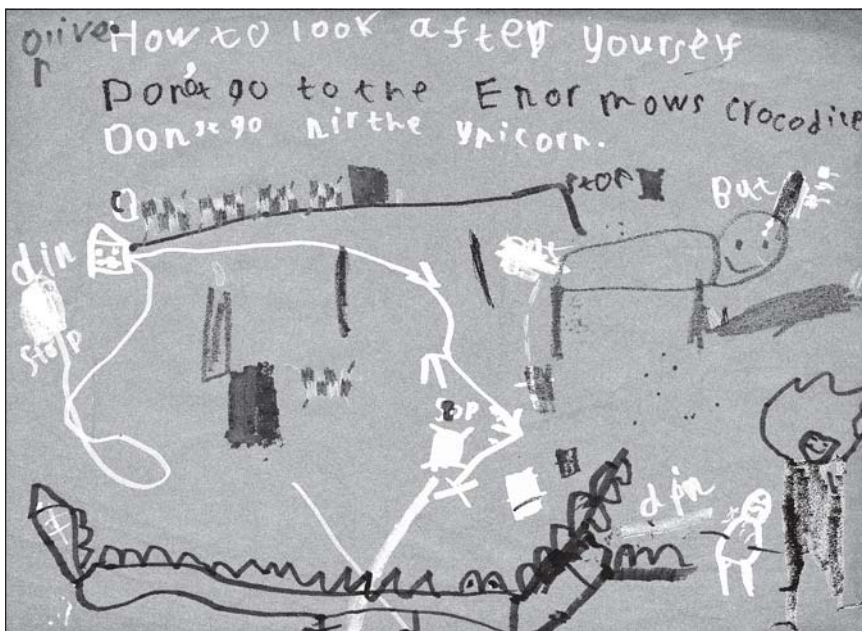 oliver
How to look after yourself
Don't go to the Enormows crocodile
Don't go nir the ynicorn.
stop
But
din
stop
Sop
din